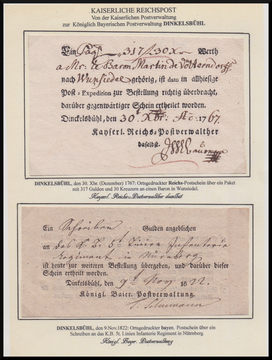 KAISERLICHE REICHSPOST
Von der Kaiserlichen Postverwaltung
zur Königlich Bayerischen Postverwaltung DINKELSBÜHL
Ein 317 fl. 30 x. Werth
a Mr. le Baron Martin de
nach Wunsiedel gehörig, ist dato in allhiesige
Post-Expedition zur Bestellung richtig überbracht,
darüber gegenwärtiger Schein ertheilet worden.
Dinckelsbühl, den 30 Xbr. Ao. 1767.
Kayserl. Reichs-Postverwalther
daselbst.
DINKELSBÜHL, den 30. Xbr. (Dezember) 1767: Ortsgedruckter Reichs-Postschein über ein Paket
mit 317 Gulden und 30 Kreuzern an einen Baron in Wunsiedel.
Kayserl. Reichs-Postverwalther daselbst
Ein Schreiben Gulden angeblichen
an das K. B. 5t Linien Infanterie
Regiment in Nürnberg
ist heute zur weiteren Bestellung übergeben, und darüber dieser
Schein ertheilt worden.
Dinkelsbühl, den 9 Nov 1822
Königl. Baier. Postverwaltung.
DINKELSBÜHL, den 9.Nov.1822: Ortsgedruckter bayer. Postschein über ein
Schreiben an das K.B. 5t. Linien-Infanterie Regiment in Nürnberg
Königl. Baier. Postverwaltung